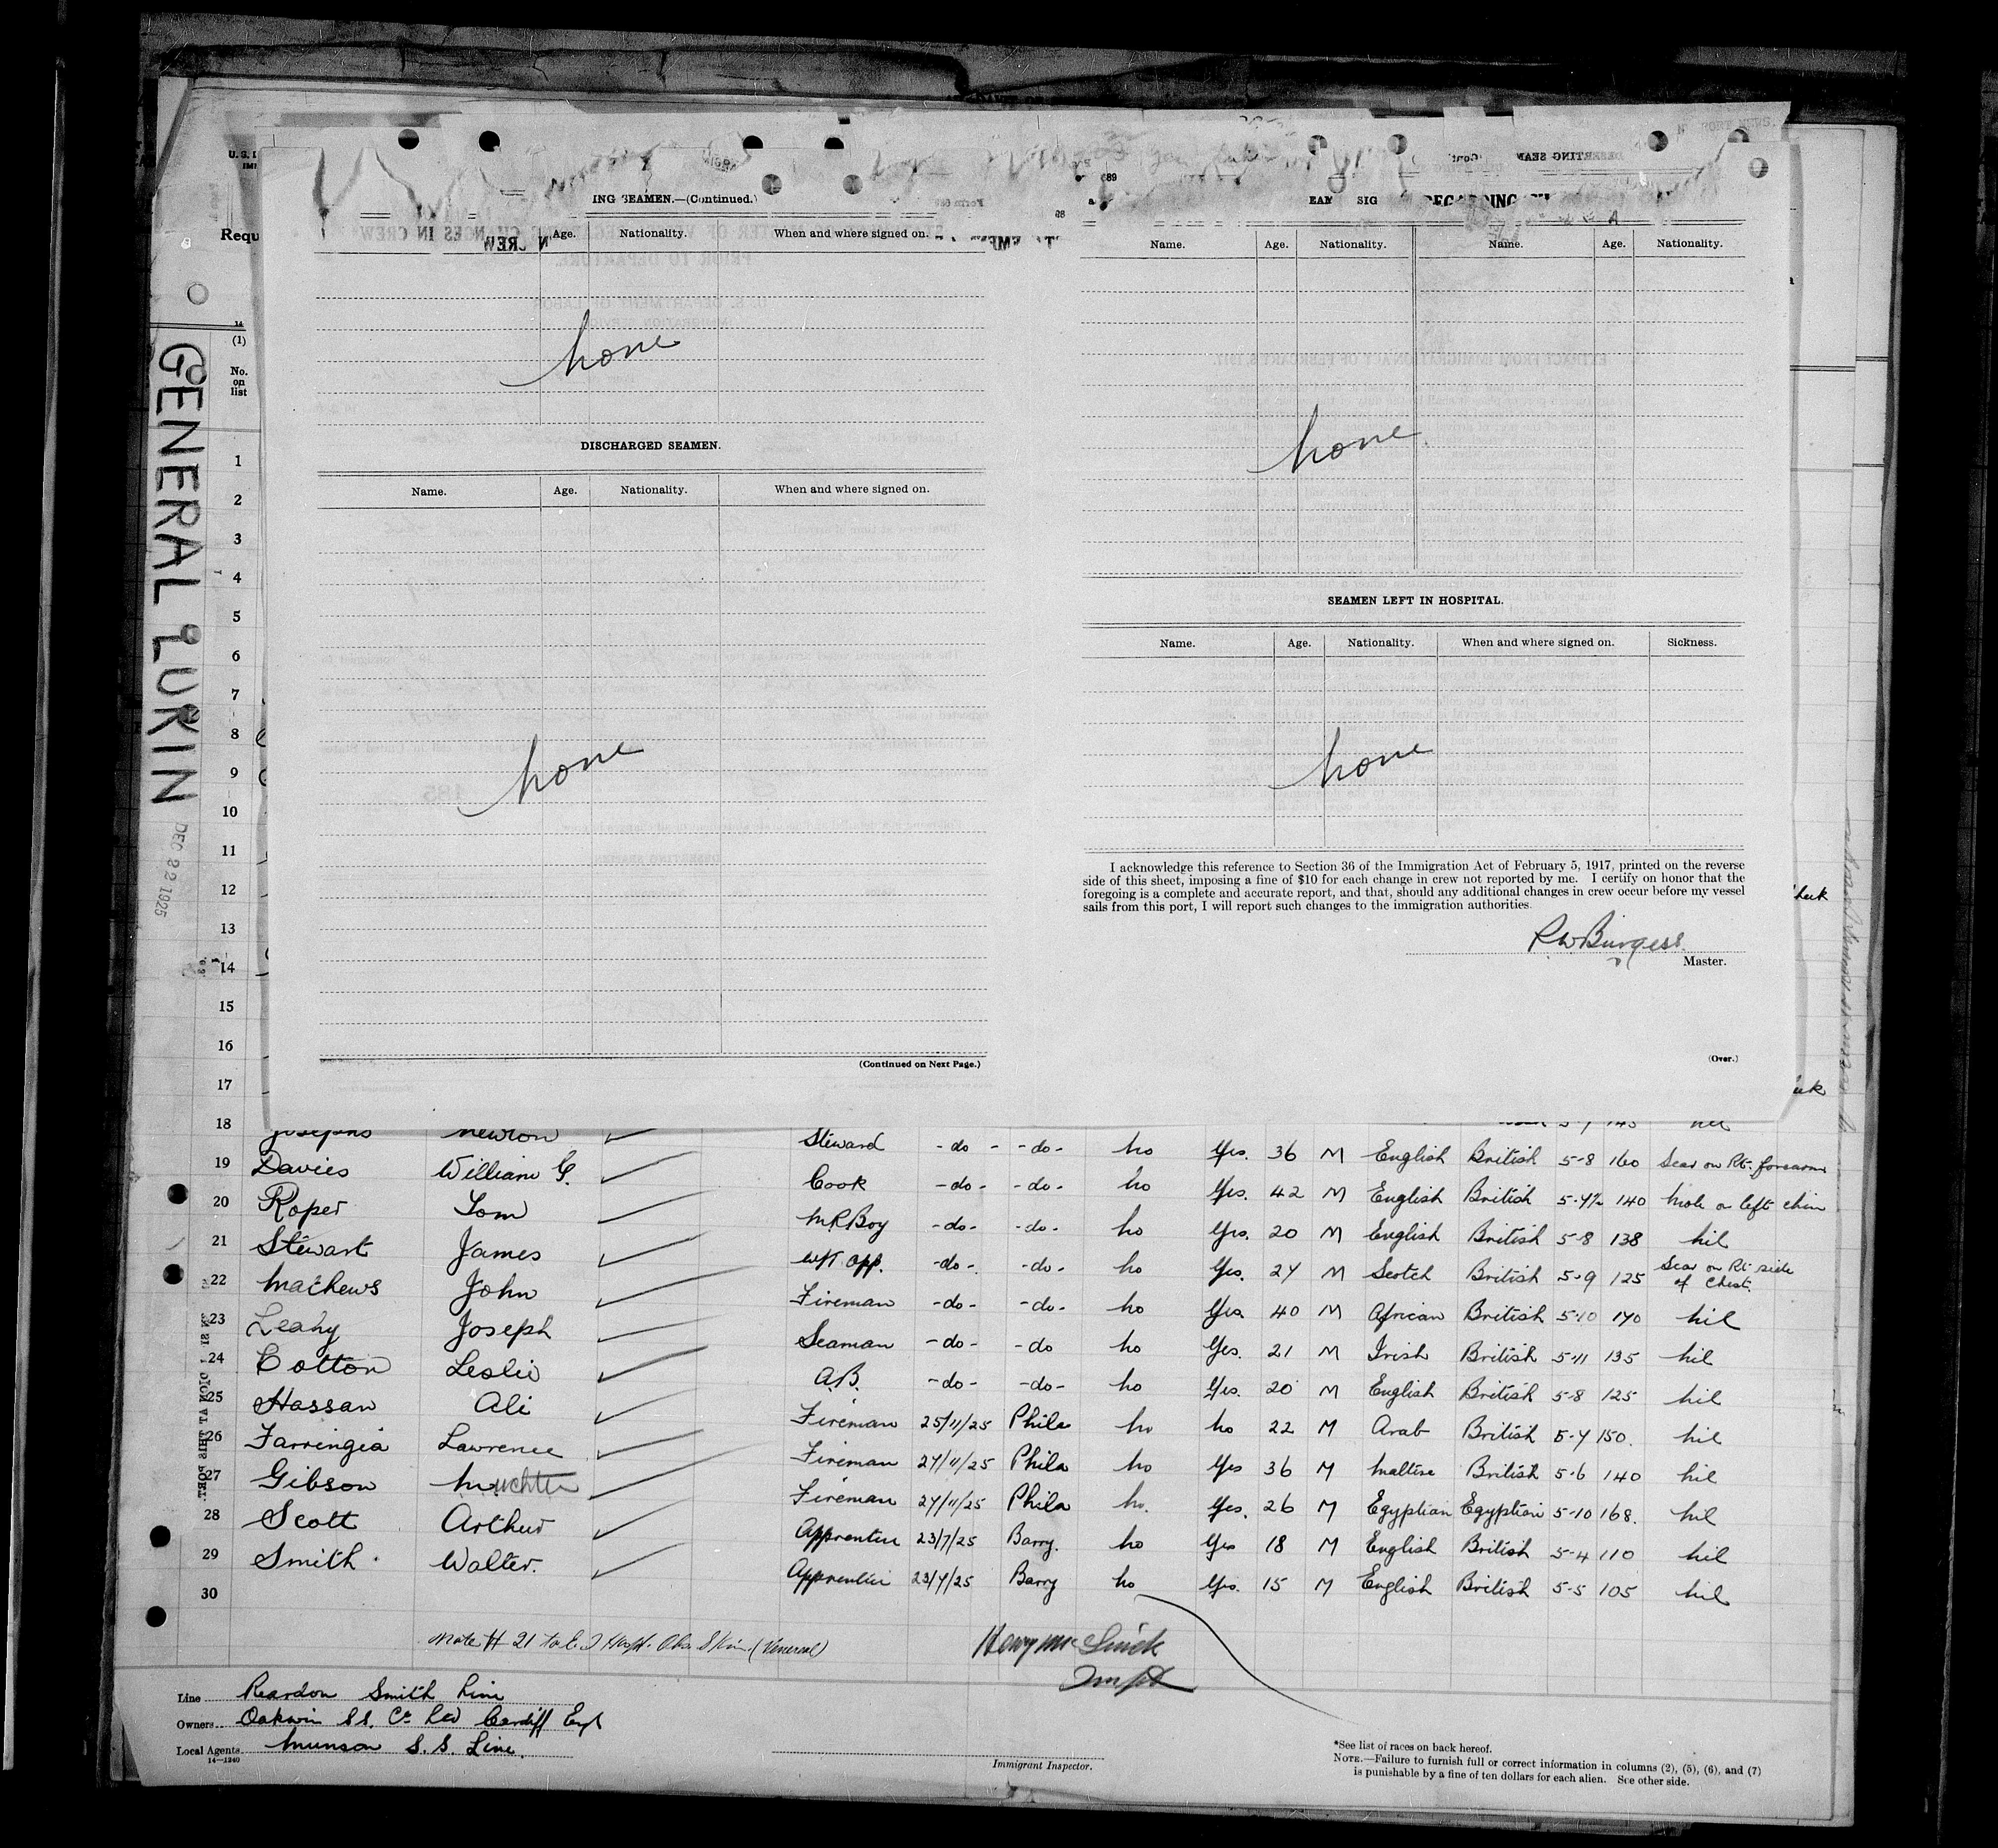 GENERAL LUKIN
DEC 22 1925
U. S.
Requ
(1)
No.
on
list
ING SEAMEN.—(Continued.)
Age. Nationality. When and where signed on.
none
DISCHARGED SEAMEN.
Name. Age. Nationality. When and where signed on.
none
(Continued on Next Page.)
Name. Age. Nationality. Name. Age. Nationality.
none
SEAMEN LEFT IN HOSPITAL.
Name. Age. Nationality. When and where signed on. Sickness.
none
I acknowledge this reference to Section 36 of the Immigration Act of February 5, 1917, printed on the reverse
side of this sheet, imposing a fine of $10 for each change in crew not reported by me. I certify on honor that the
foregoing is a complete and accurate report, and that, should any additional changes in crew occur before my vessel
sails from this port, I will report such changes to the immigration authorities.
R W Burgess
Master.
(Over.)
1
2
3
4
5
6
7
8
9
10
11
12
13
14
15
16
17
18 Josephs Newton Steward -do- -do- no Yes. 36 M English British 5-8 160 Scar on Rt. forearm
19 Davies William G. Cook -do- -do- no Yes. 42 M English British 5-4½ 140 Mole on left chin
20 Roper Tom M R Boy -do- -do- no Yes. 20 M English British 5-8 138 nil
21 Stewart James W/T App. -do- -do- no Yes. 24 M Scotch British 5-9 125 Scar on Rt side of Chest.
22 Mathews John Fireman -do- -do- no Yes. 40 M African British 5-10 170 nil
23 Leahy Joseph Seaman -do- -do no Yes. 21 M Irish British 5-11 135 nil
24 Cotton Leslie A.B. -do- -do- no Yes. 20 M English British 5-8 125 nil
25 Hassan Ali Fireman 25/11/25 Phila no no 22 M Arab British 5-7 150. nil
26 Farringia Lawrence Fireman 27/11/25 Phila no Yes 36 M Maltese British 5-6 140 nil
27 Gibson Fireman 27/11/25 Phila no. Yes. 26 M Egyptian Egyptian 5-10 168. nil
28 Scott Arthur Apprentice 23/7/25 Barry. no Yes 18 M English British 5-4 110 nil
29 Smith Walter. Apprentice 23/7/25 Barry no Yes. 15 M English British 5-5 105 nil
30
Note # 21 Hosp. Skin (Veneral)
Immigrant Inspector.
Line Reardon Smith Line
Owners Oakwin SS. Co Ltd Cardiff Engl
Local Agents Munson S.S. Line.
14—1240
*See list of races on back hereof.
NOTE.—Failure to furnish full or correct information in columns (2), (5), (6), and (7)
is punishable by a fine of ten dollars for each alien. See other side.